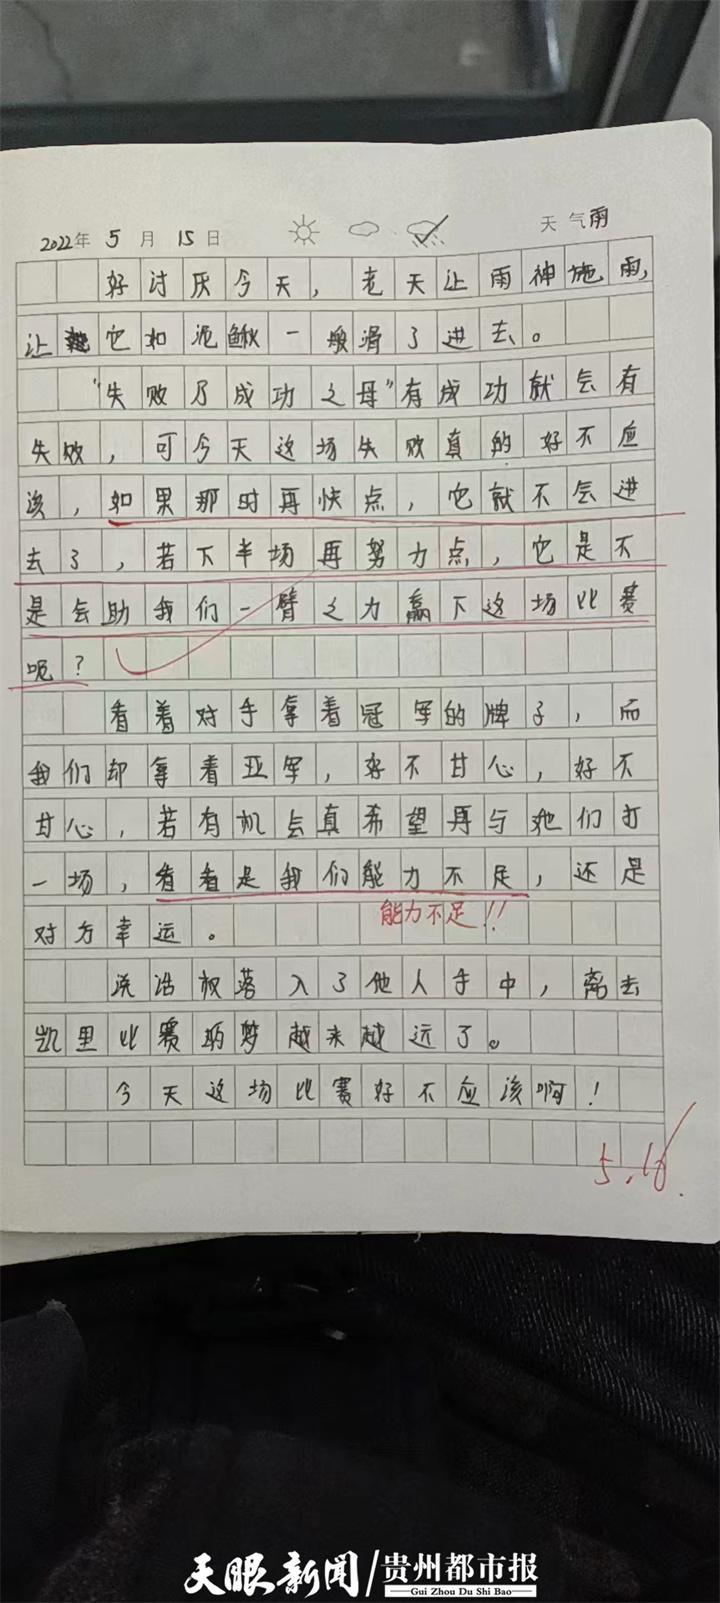 2022年 5 月 15 日 天气雨
好讨厌今天，老天让雨神施雨，
让它如泥鳅一般滑了进去。
“失败乃成功之母”有成功就会有
失败，可今天这场失败真的好不应
该，如果那时再快点，它就不会进
去了，若下半场再努力点，它是不
是会助我们一臂之力赢下这场比赛
呢？
看着对手拿着冠军的牌子，而
我们却拿着亚军，好不甘心，好不
甘心，若有机会真希望再与她们打
一场，看看是我们能力不足，还是
能力不足！！
对方幸运。
洗浴权落入了他人手中，离去
凯里比赛的梦越来越远了。
今天这场比赛好不应该啊！
5.18.
天眼新闻/贵州都市报
Gui Zhou Du Shi Bao